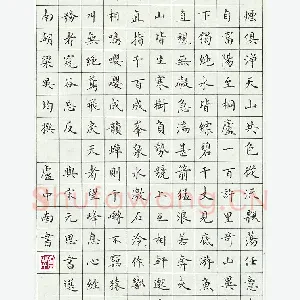 煙俱淨天山共色從流飄蕩任意
自富陽至桐廬一百許里奇山異
下獨絕水皆縹碧千丈見底游魚
直視無礙急湍甚箭猛浪若奔夾
山皆生寒樹負勢競上互相軒邈
直指千百成峰泉水激石泠泠作
相鳴嚶嚶成韻蟬則千轉不窮猿
叫無絕鳶飛戾天者望峰息心經
務者窺谷忘反 與朱元思書
南朝梁吳均撰 虛中南書
Shufawang.cn